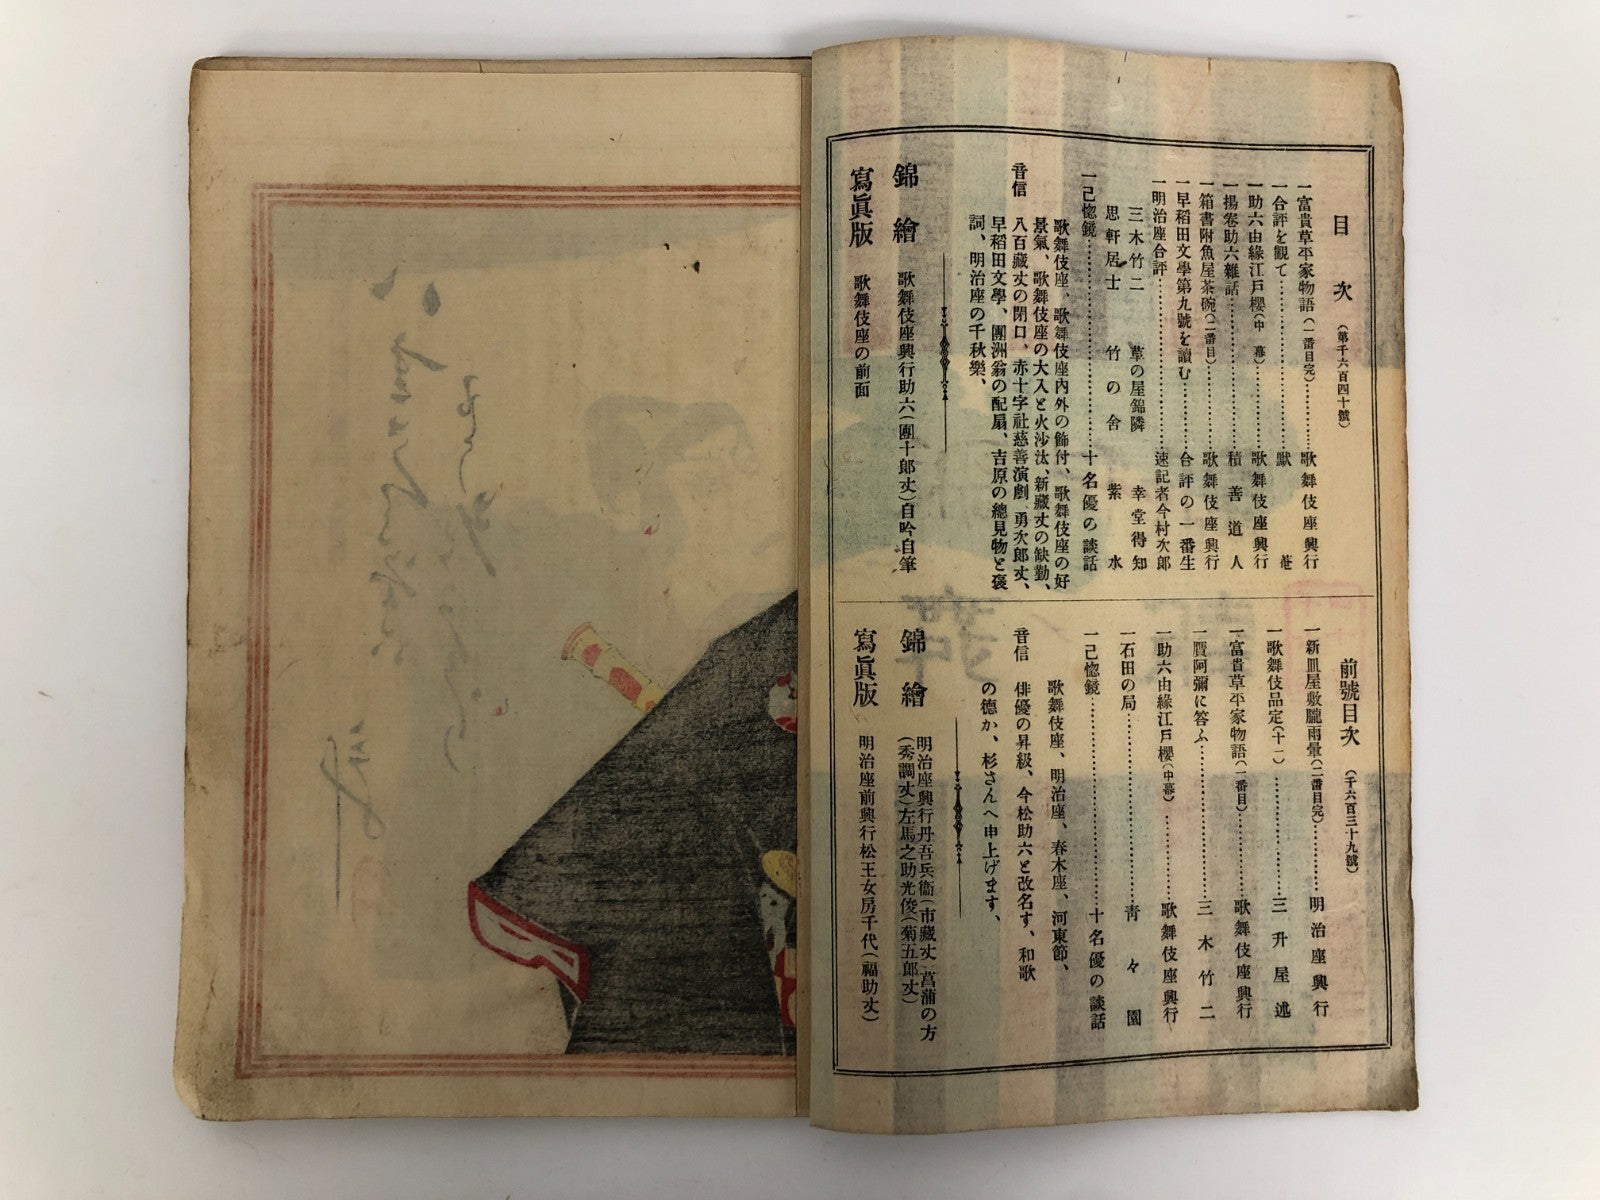 目次（第千六百四十號）
一富貴草平家物語（二番目完）…………歌舞伎座興行
一合評を観て…………默菴
一助六由緣江戸櫻（中幕）…………歌舞伎座興行
一揚卷助六雜話…………積善道人
一箱書附魚屋茶碗（二番目）…………歌舞伎座興行
一早稻田文學第九號を讀む…………合評の一番生
一明治座合評…………速記者今村次郎
三木竹二　草の屋錦隣　幸堂得知
思軒居士　竹の舍　紫水
一己惚鏡…………十名優の談話
音信　歌舞伎座、歌舞伎座内外の飾付、歌舞伎座の好
景氣、歌舞伎座の大入と火沙汰、新藏丈の缺勤、
八百藏丈の閉口、赤十字社慈善演劇、勇次郎丈、
早稻田文學、團洲翁の配扇、吉原の總見物と褒
詞、明治座の千秋樂、
錦繪　歌舞伎座興行助六（團十郎丈）自吟自筆
寫眞版　歌舞伎座の前面
前號目次（千六百三十九號）
一新皿屋敷朧雨暈（二番目完）…………明治座興行
一歌舞伎品定（十一）…………三升屋述
一富貴草平家物語（一番目）…………歌舞伎座興行
一贋阿彌に答ふ…………三木竹二
一助六由緣江戸櫻（中幕）…………歌舞伎座興行
一石田の局…………靑々園
一己惚鏡…………十名優の談話
音信　歌舞伎座、明治座、春木座、河東節、
俳優の昇級、今松助六と改名す、和歌
の德か、杉さんへ申上げます、
錦繪　明治座興行丹吾兵衞（市藏丈）菖蒲の方
（秀調丈）左馬之助光俊（菊五郎丈）
寫眞版　明治座前興行松王女房千代（福助丈）